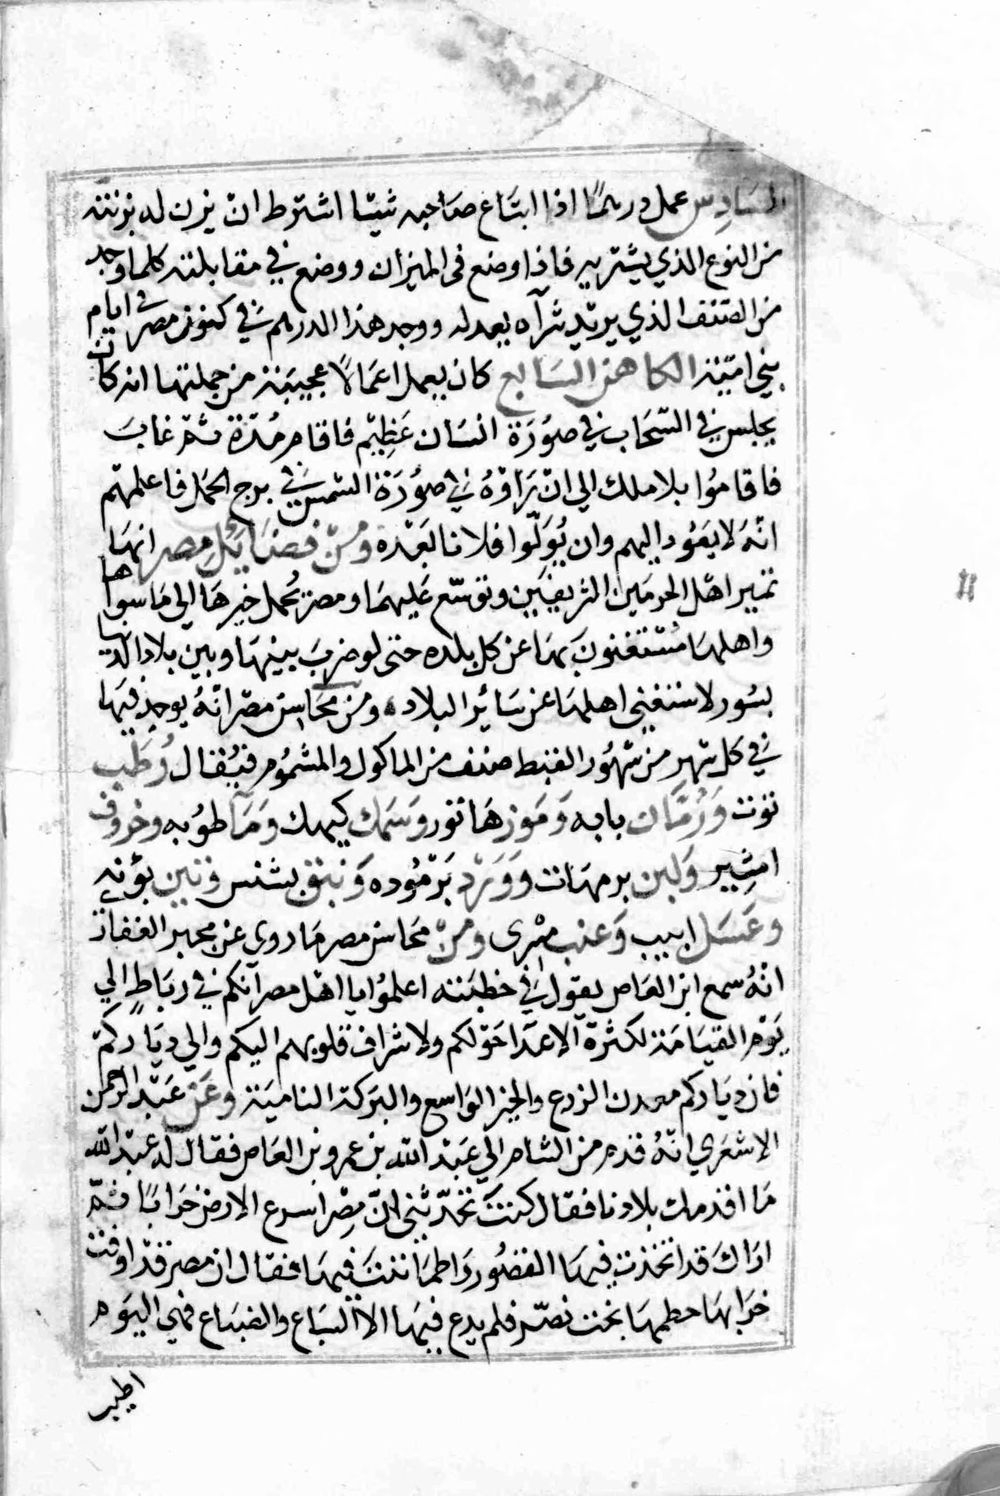 السادس عمل درهما اذا ابتاع صاحبه شيئا اشترط ان يزن له بزنته
من النوع الذي يشتريه فاذا وضع فى الميزان ووضع في مقابلته كلما وجد
من الصنف الذي يريد شرآه يعدله ووجد هذا الدرهم في كنوز مصر في ايام
بني امية الكاهن السابع كان يعمل اعمالا عجيبة من جملتها انه كان
يجلس في السحاب في صورة انسان عظيم فاقام مدة ثم غاب
فاقاموا بلا ملك الي ان راوه في صورة الشمس في برج الحمل فاعلمهم
انه لا يعود اليهم وان يولوا فلانا بعده ومن فضايل مصر انها
تمير اهل الحرمين الشريفين وتوسع عليهما ومصر يحمل خيرها الي ما سواها
واهلها مستغنون بها عن كل بلده حتى لو ضرب بينها وبين بلاد الدنيا
بسور لاستغني اهلها عن سائر البلاد ومن محاسن مصر انه يوجد فيها
في كل شهر من شهور القبط صنف من الماكول والمشموم فيقال رطب
توت ورمان بابه وموز هاتور وسمك كيهك وما طوبه وخروف
امشير ولبن برمهات وورد برموده ونبق بشنس وتين بؤنه
وعسل ابيب وعنب مسرى ومن محاسن مصر ما روى عن مجبر الغفار
انه سمع ابن العاص يقول في خطبته اعلموا يا اهل مصر انكم في رباط الي
يوم القيامة لكثرة الاعدآ حولكم ولاشراف قلوبهم اليكم والي دياركم
فان دياركم معدن الزرع والخير الواسع والبركة النامية وعن عبد الرحمن
الاشعري انه قدم من الشام الي عبد الله بن عمرو بن العاص فقال له عبد الله
ما اقدمك بلادنا فقال كنت تحدثني ان مصر اسرع الارض خرابا ثم
اراك قد اتخذت فيها القصور واطماننت فيها فقال ان مصر قد اوفت
خرابها حطمها بخت نصر فلم يدع فيها الا السباع والضباع فهي اليوم
اطيب